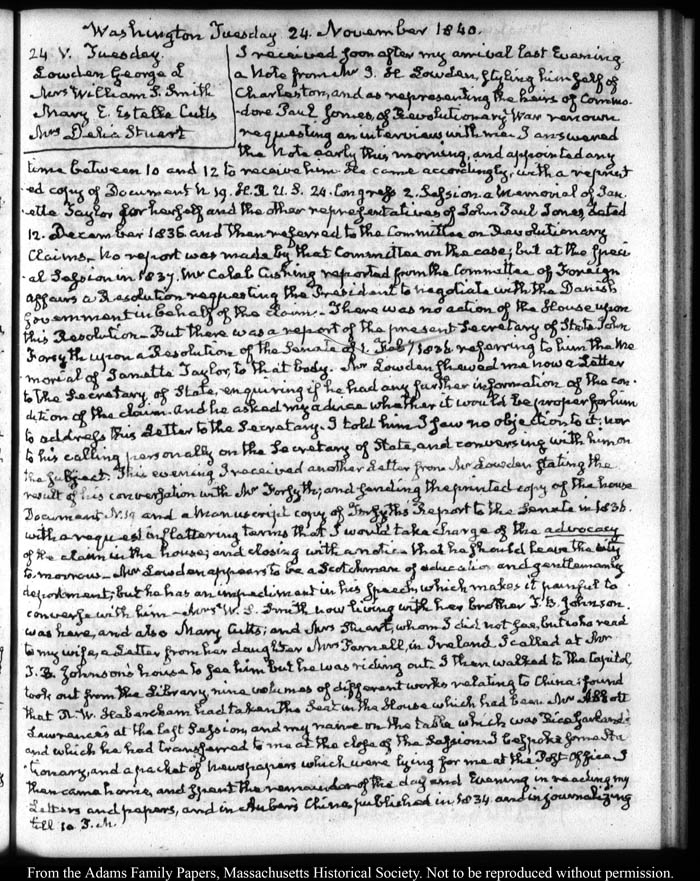 Washington Tuesday 24. November 1840.
24 V. Tuesday.
Lowden George L
Mrs William L. Smith
Mary E. Estelle Cutts
Mrs Delia Stuart
I received soon after my arrival last Evening
a Note from Mr G. H Lowden, styling himself of
Charleston, and as representing the heirs of Commo-
dore Paul Jones, of Revolutionary War renown
requesting an interview with me. I answered
the Note early this morning, and appointed any
time between 10 and 12 to receive him. He came accordingly, with a reprint
ed copy of Document N 19. H. R. U. S. 24. Congress 2. Session. a Memorial of Jan-
ette Taylor for herself and the other representatives of John Paul Jones, dated
12. December 1836 and then referred to the Committee on Revolutionary
Claims. No report was made by that Committee on the case; but at the Speci-
al Session in 1837. Mr Caleb Cushing reported from the Committee of Foreign
affairs a Resolution requesting the President to negotiate with the Danish
Government in behalf of the claim. There was no action of the House upon
this Resolution. But there was a report of the present Secretary of State John
Forsyth upon a Resolution of the Senate of 1. Feby 1836 referring to him the Me
morial of Janette Taylor, to that body. Mr Lowden shewed me now a Letter
to the Secretary of State, enquiring if he had any further information of the con-
dition of the claim. and he asked my advice whether it would be proper for him
to address this Letter to the Secretary. I told him I saw no objection to it; nor
to his calling personally on the Secretary of State, and conversing with him on
the subject. This evening I received another Letter from Mr Lowden stating the
result of his conversation with Mr Forsyth; and sending the printed copy of the house
Document N. 19 and a Manuscript copy of Forsyths Report to the Senate in 1836.
with a request in flattering terms that I would take charge of the advocacy
of the claim in the house; and closing with a notice that he should leave the city
to-morrow. Mr Lowden appears to be a Scotchman of education and gentlemanly
deportment; but he has an impediment in his speech, which makes it painful to
converse with him. Mrs W. L. Smith now living with her brother J. B. Johnson.
was here, and also Mary Cutts; and Mrs Stuart, whom I did not see, but who read
to my wife, a Letter from her daughter Mrs Parnell, in Ireland. I called at Mr
J. B. Johnson's house to see him but he was riding out. I then walked to the Capitol,
took out from the Library, nine volumes of different works relating to China: found
that R. W. Habersham had taken the Seat in the House which had been Mr Abbott
Lawrence's at the last Session, and my name on the table which was Rice Garland's
and which he had transferred to me at the close of the Session. I bespoke some Sta
tionary, and a packet of Newspapers which were lying for me at the Post Office. I
then came home, and spent the remainder of the day and Evening in reading my
Letters and papers, and in Auber's China published in 1834. and in journalizing
till 10 P.M.
From the Adams Family Papers, Massachusetts Historical Society. Not to be reproduced without permission.